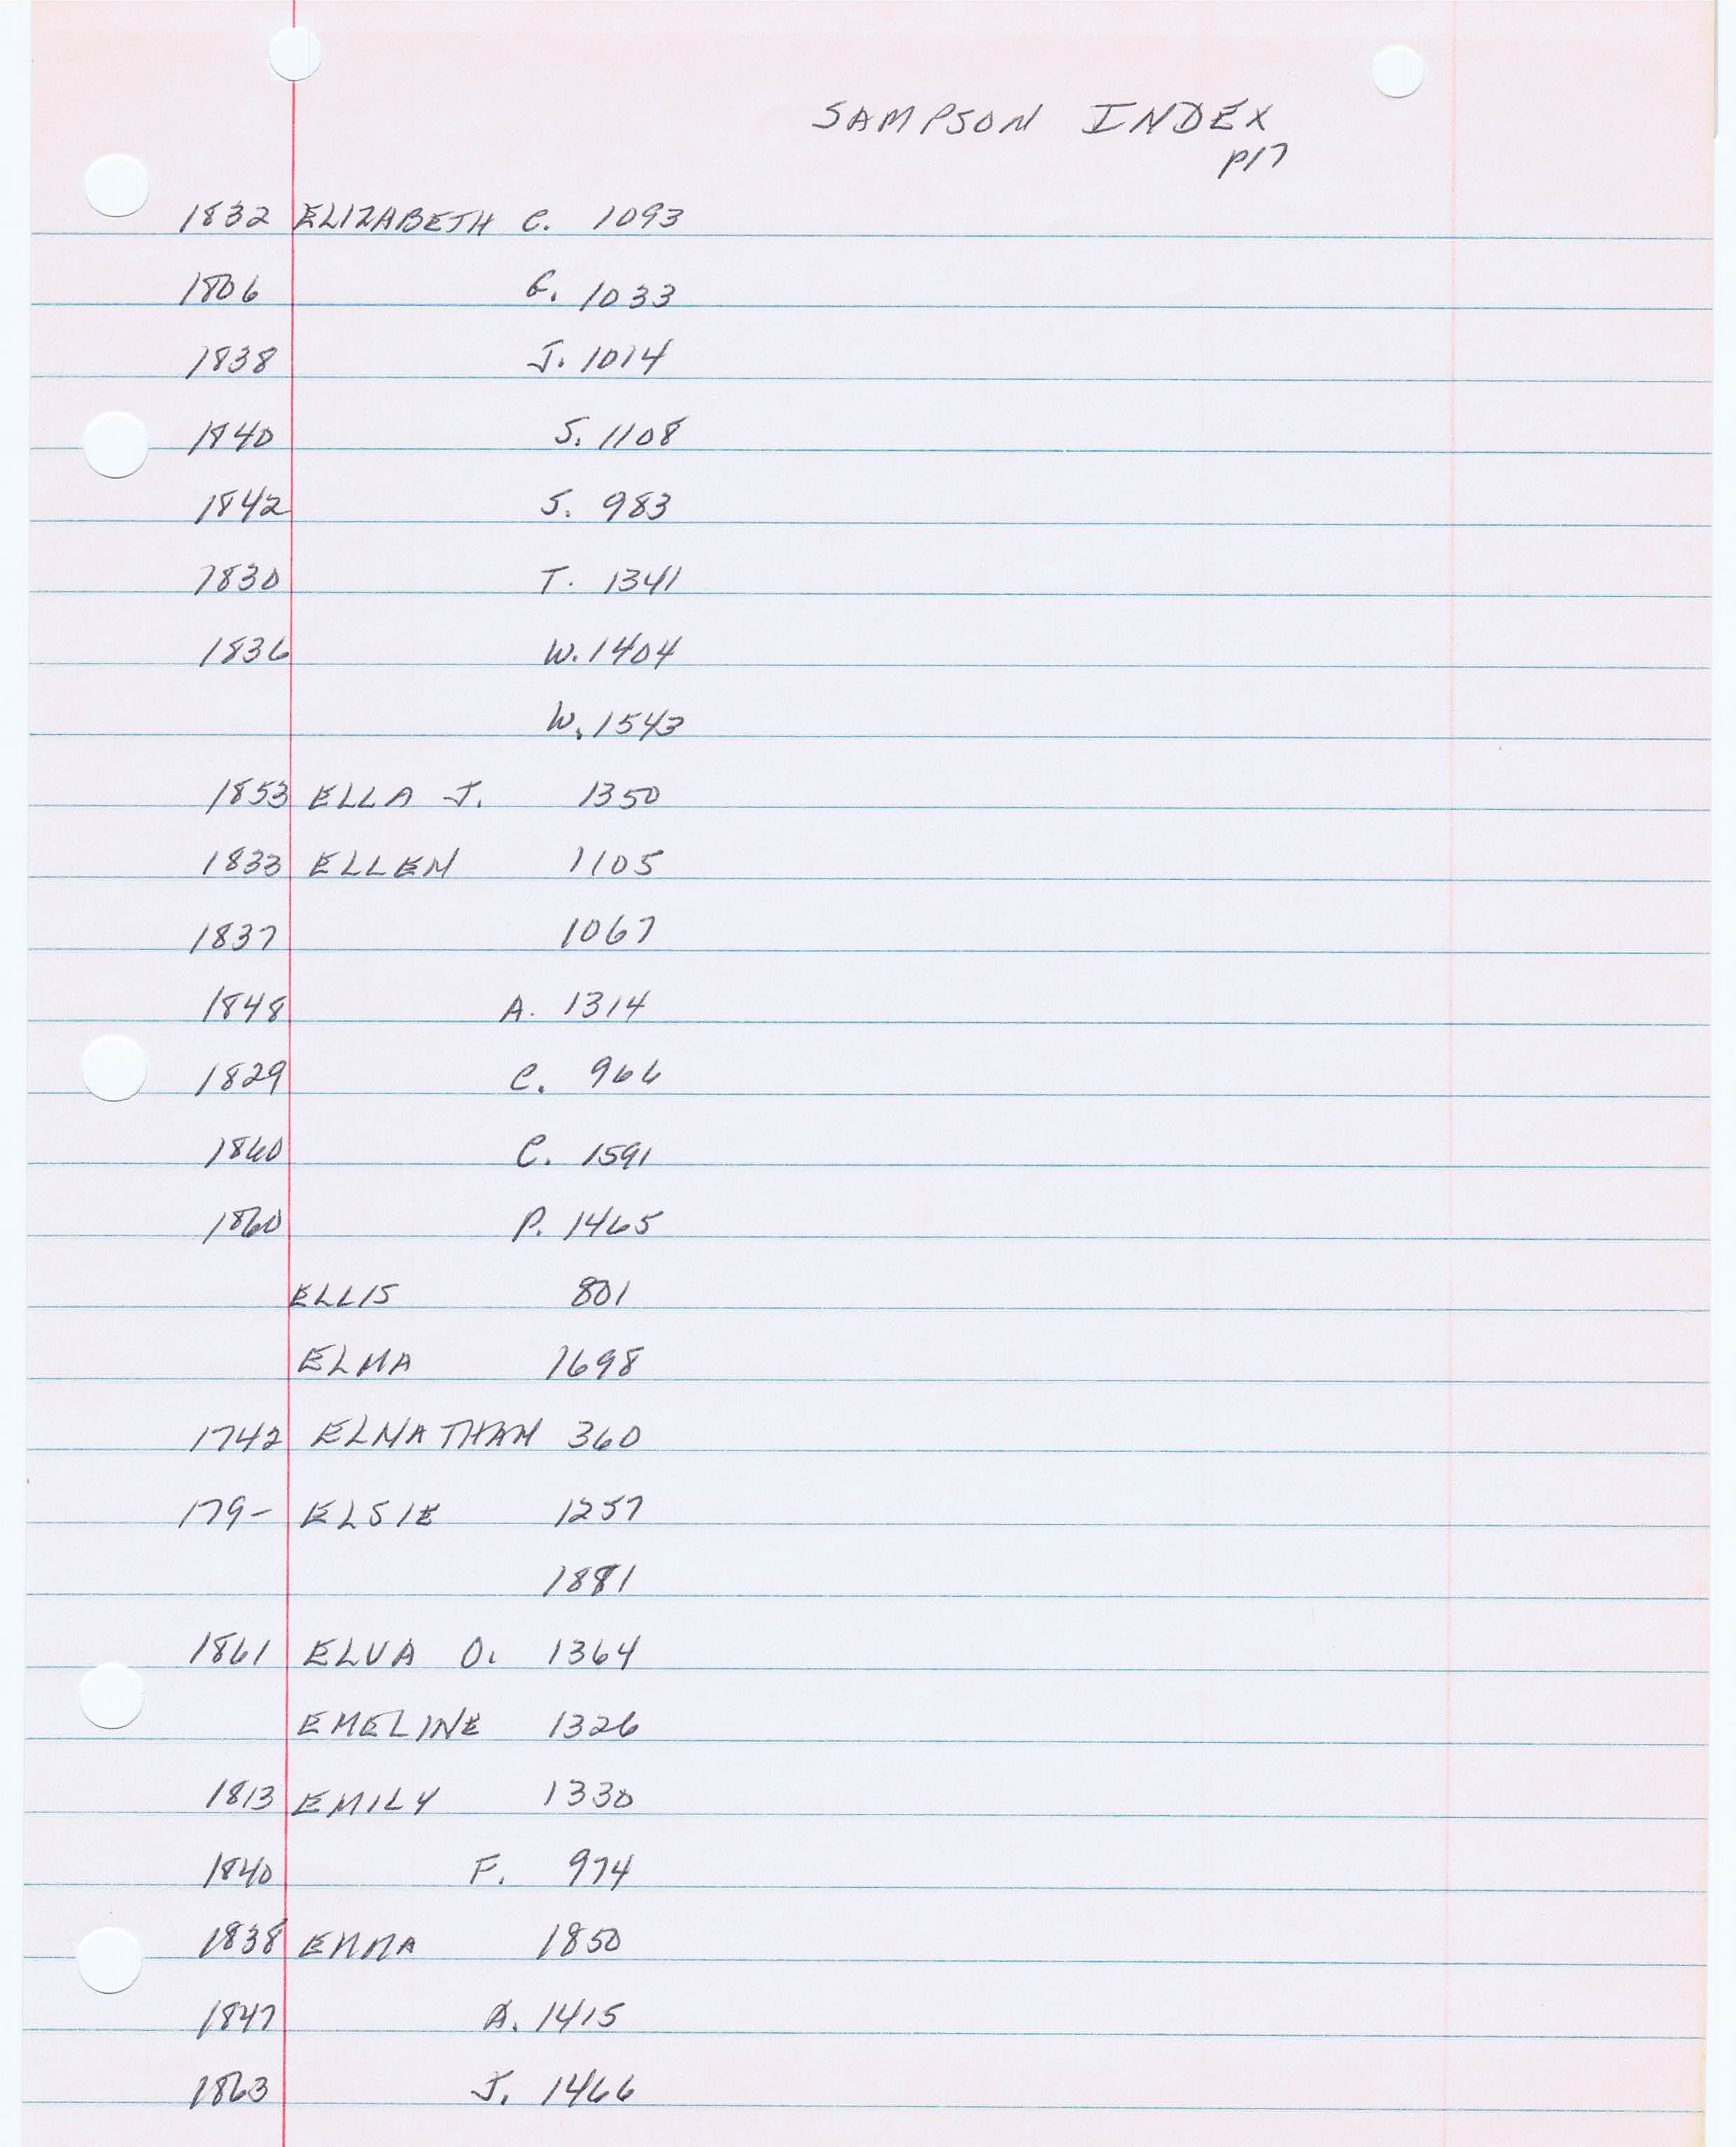 SAMPSON INDEX
P17
1832 ELIZABETH C. 1093
1806 G. 1033
1838 J. 1014
1840 S. 1108
1842 S. 983
1830 T. 1341
1836 W. 1404
W. 1543
1853 ELLA J. 1350
1833 ELLEN 1105
1837 1067
1848 A. 1314
1829 C. 966
1860 C. 1591
1860 P. 1465
ELLIS 801
ELMA 1698
1742 ELNATHAN 360
179- ELSIE 1257
1881
1861 ELVA O. 1364
EMELINE 1326
1813 EMILY 1330
1840 F. 974
1838 EMMA 1850
1847 A. 1415
1863 J. 1466